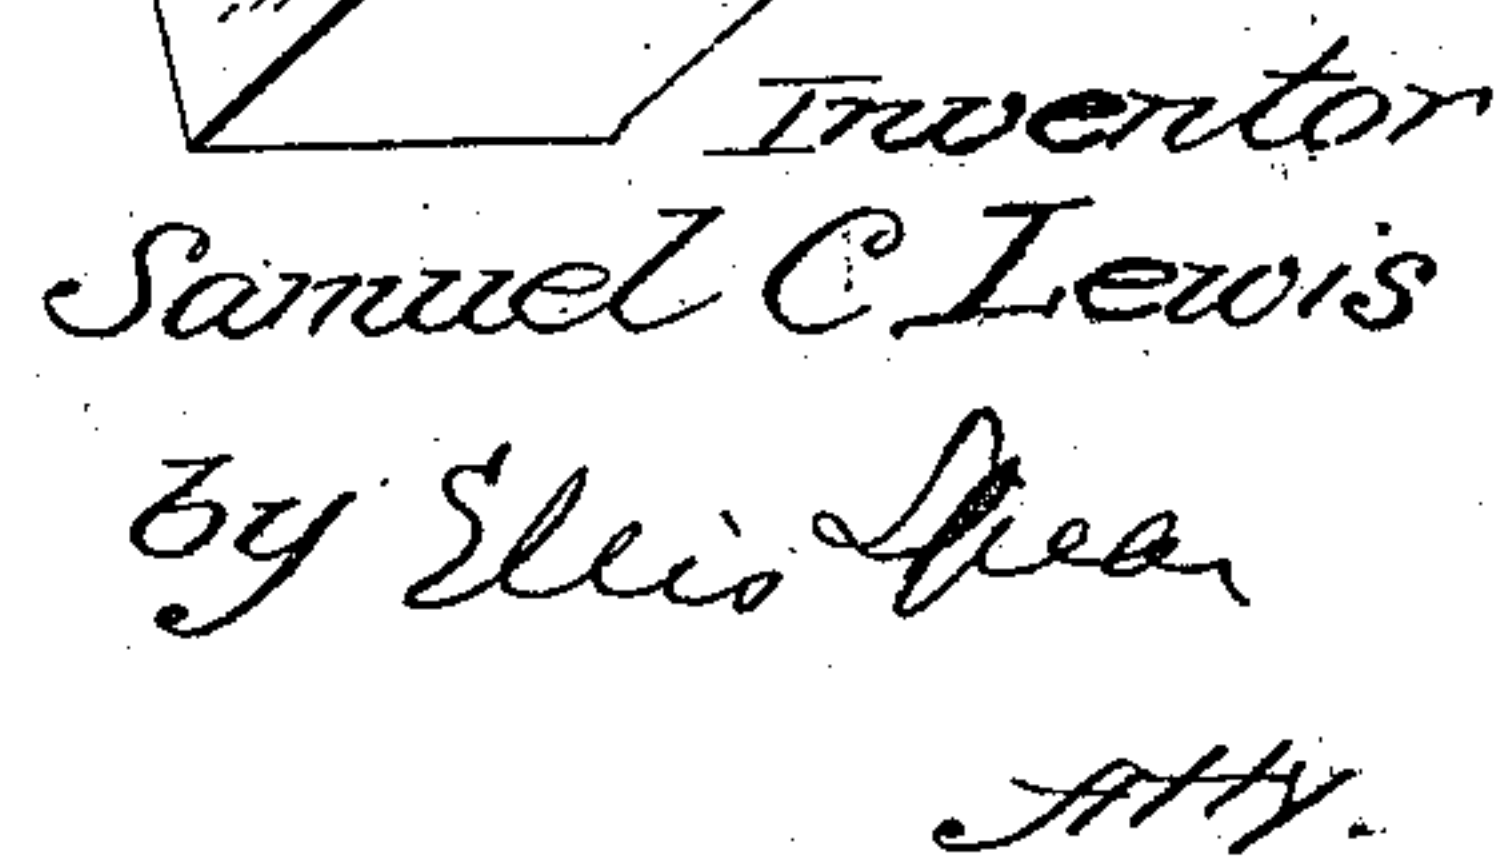 Inventor
Samuel C Lewis
by Ellis Spear
Atty.